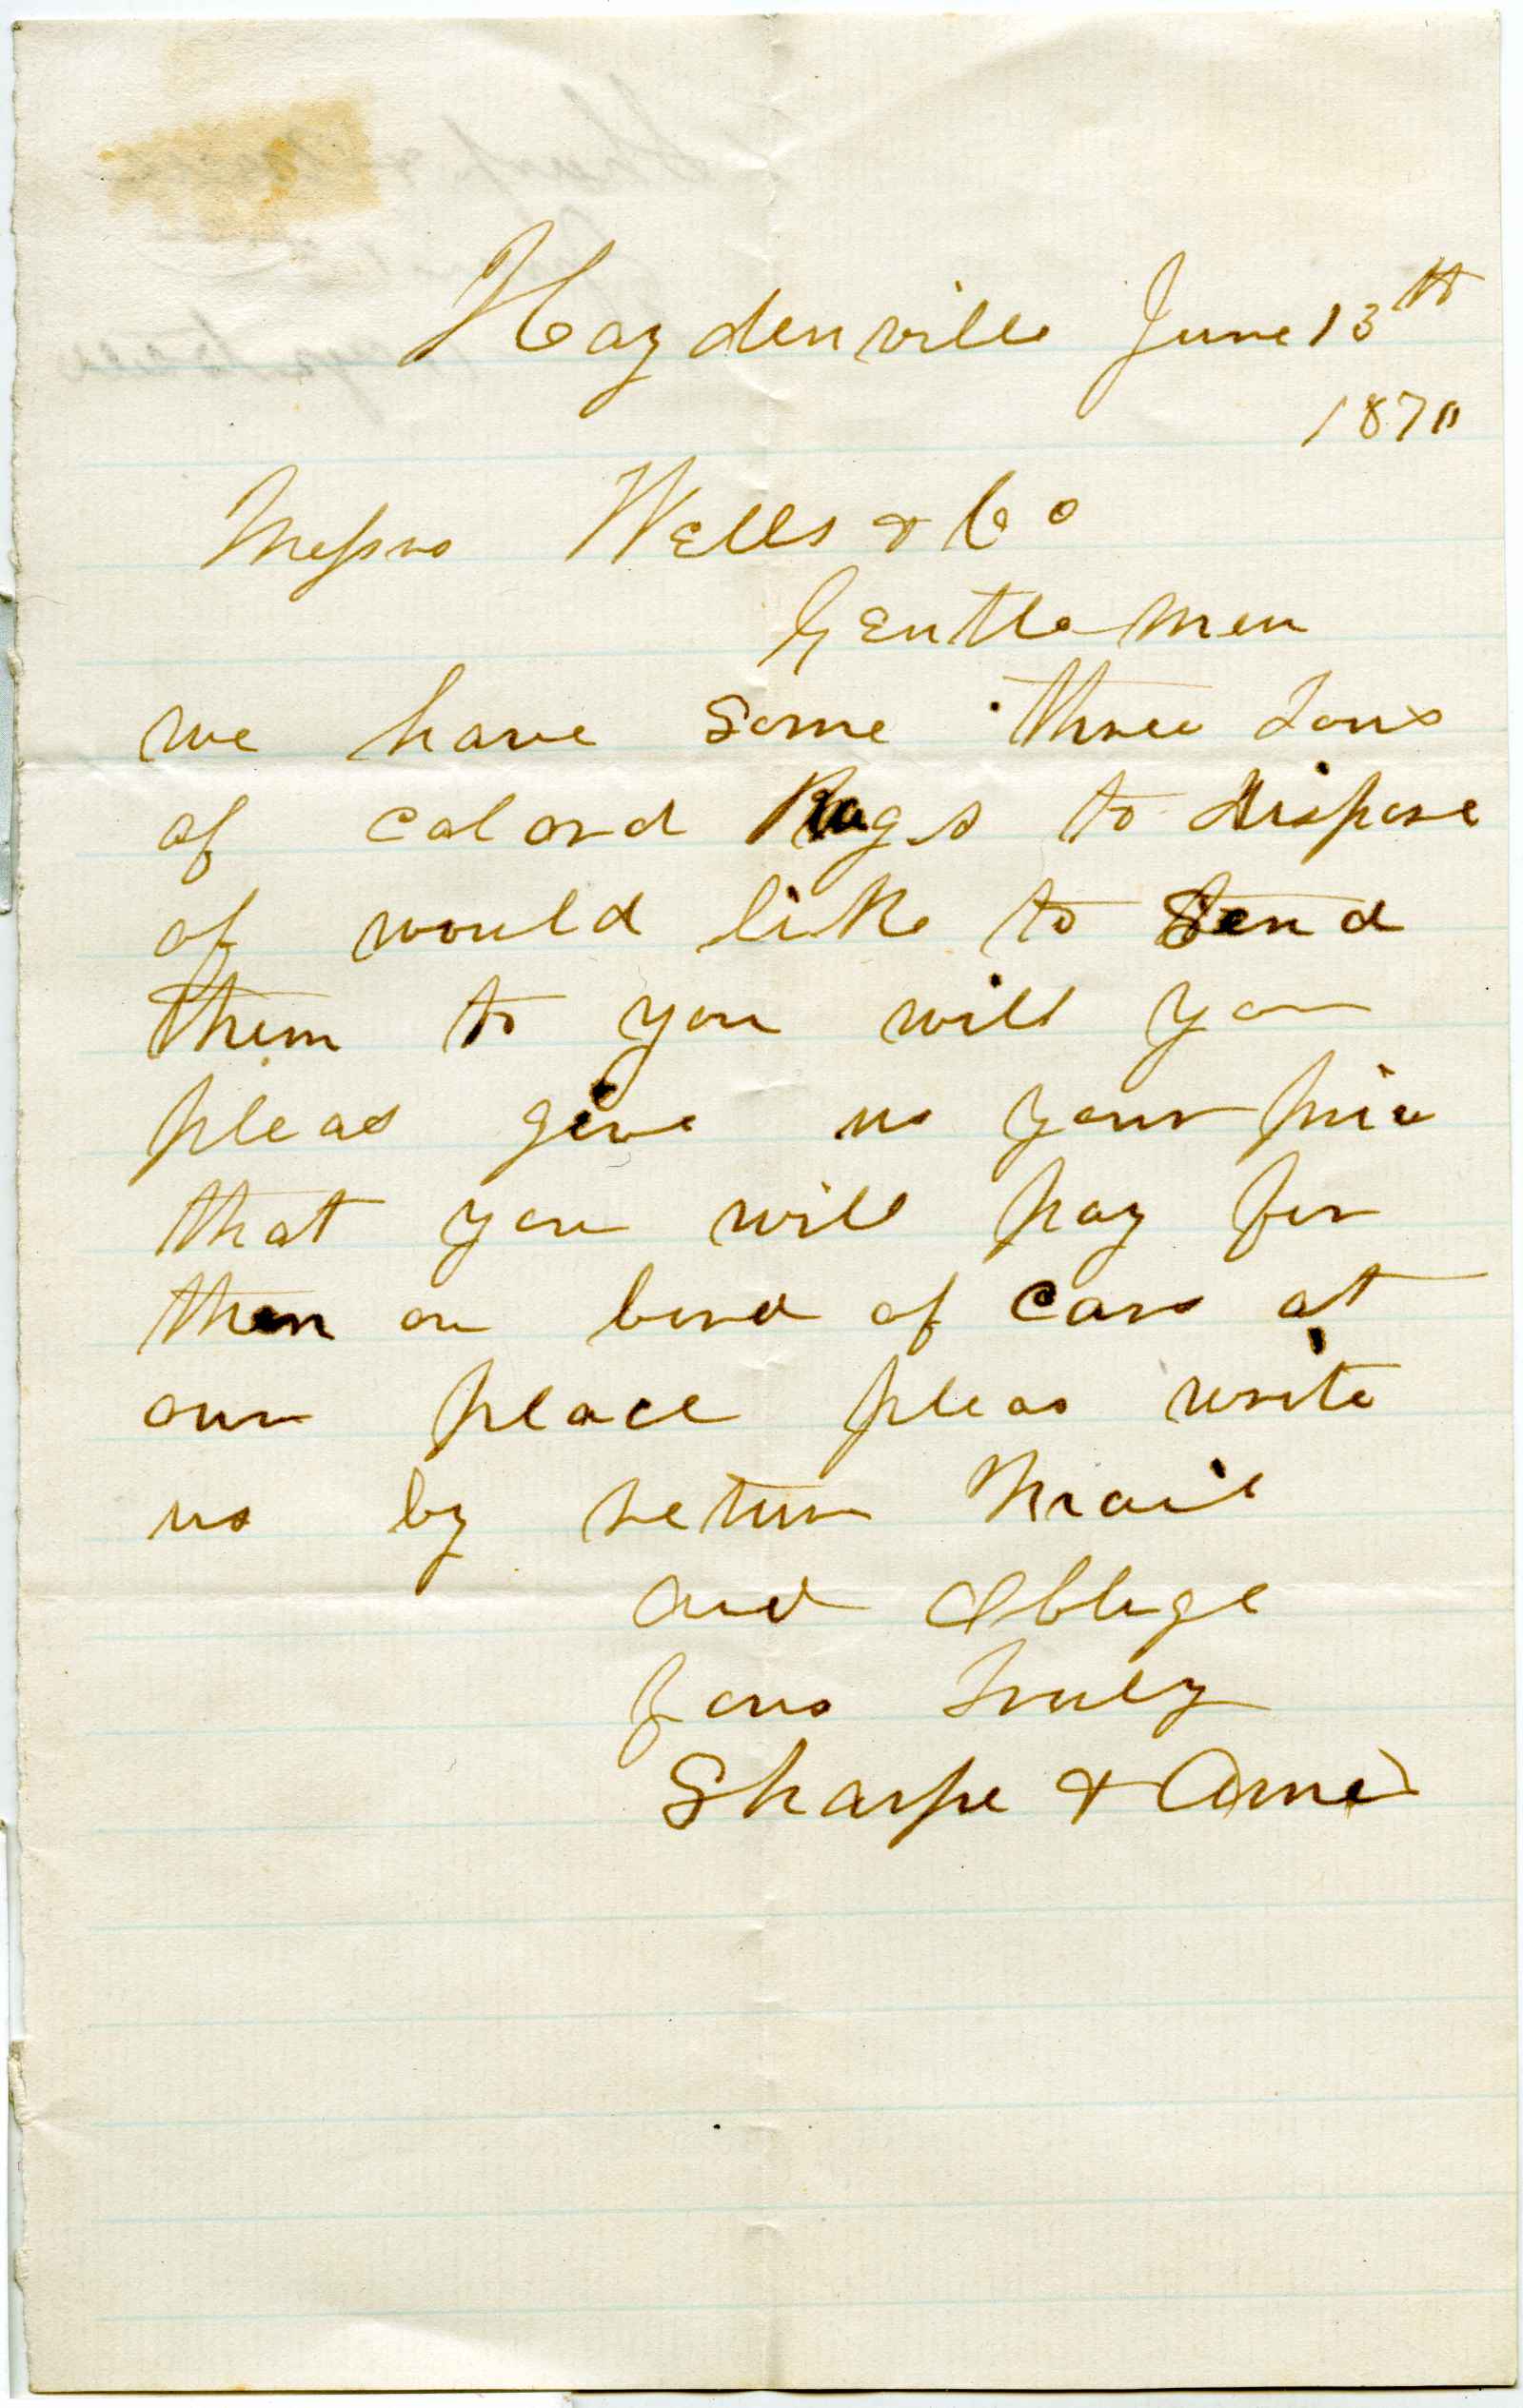 Haydenville June 13th
1870
Messrs Wells & Co
Gentlemen
we have some three tons
of colord Rags to dispose
of would like to Send
them to you will you
pleas give us your price
that you will pay for
them on bord of cars at
our place pleas write
us by return Mail
and Oblige
yours Truly
Sharpe & Ames